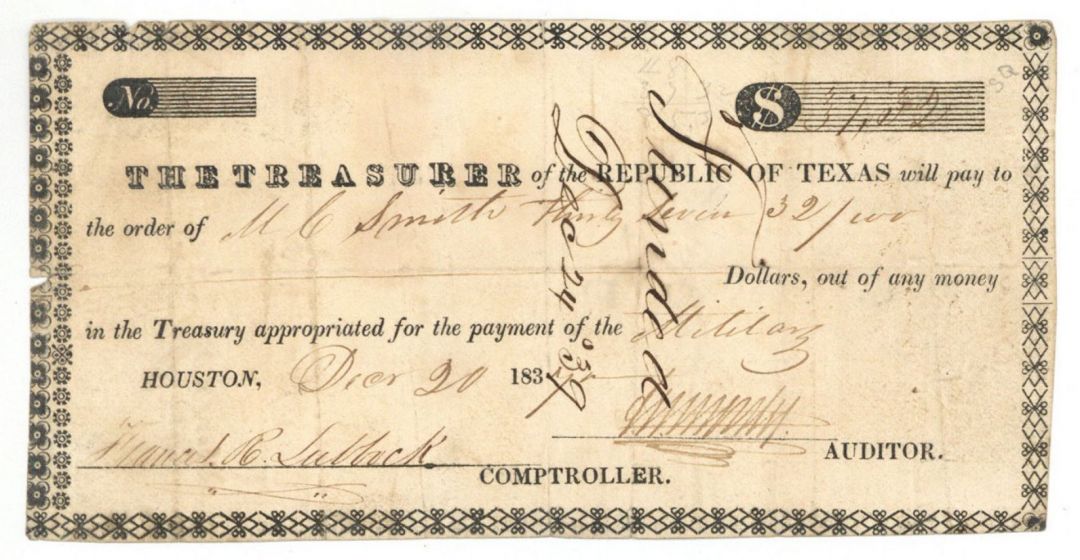 No.
$ 37,32
THE TREASURER of the REPUBLIC OF TEXAS will pay to
the order of M C Smith Thirty Seven 32/100
Dollars, out of any money
in the Treasury appropriated for the payment of the Military
HOUSTON, Decr 20 183
Francis R. Lubbock
AUDITOR.
COMPTROLLER.
Dec 24 '39
SQ